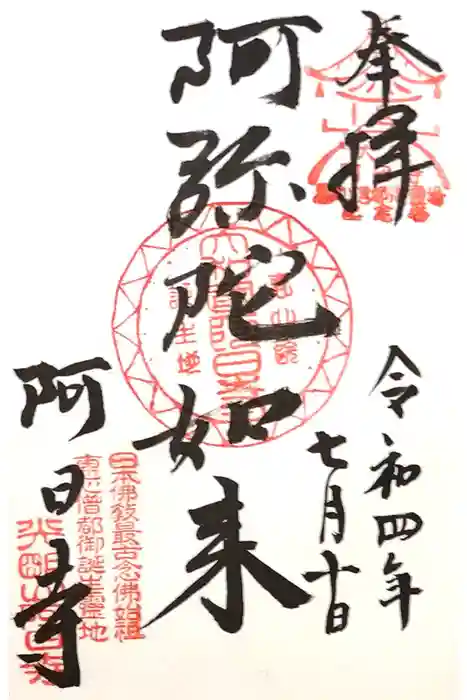 奉拝
令和四年
七月十日
阿弥陀如来
日本佛教最古念佛始祖
恵心僧都御誕生霊地
阿日寺